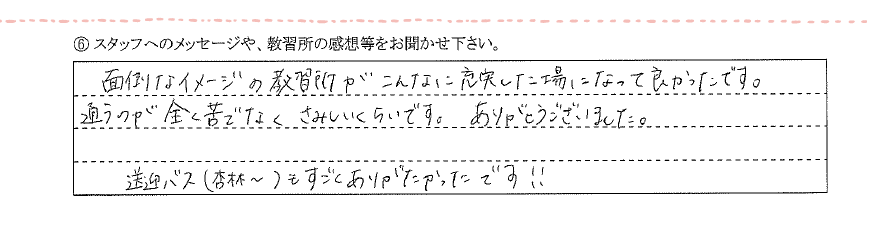 ⑥ スタッフへのメッセージや、教習所の感想等をお聞かせ下さい。
面倒なイメージの教習所がこんなに充実した場になって良かったです。
通うのが全く苦でなく さみしいくらいです。 ありがとうございました。
送迎バス(杏林～)もすごくありがたかったです!!